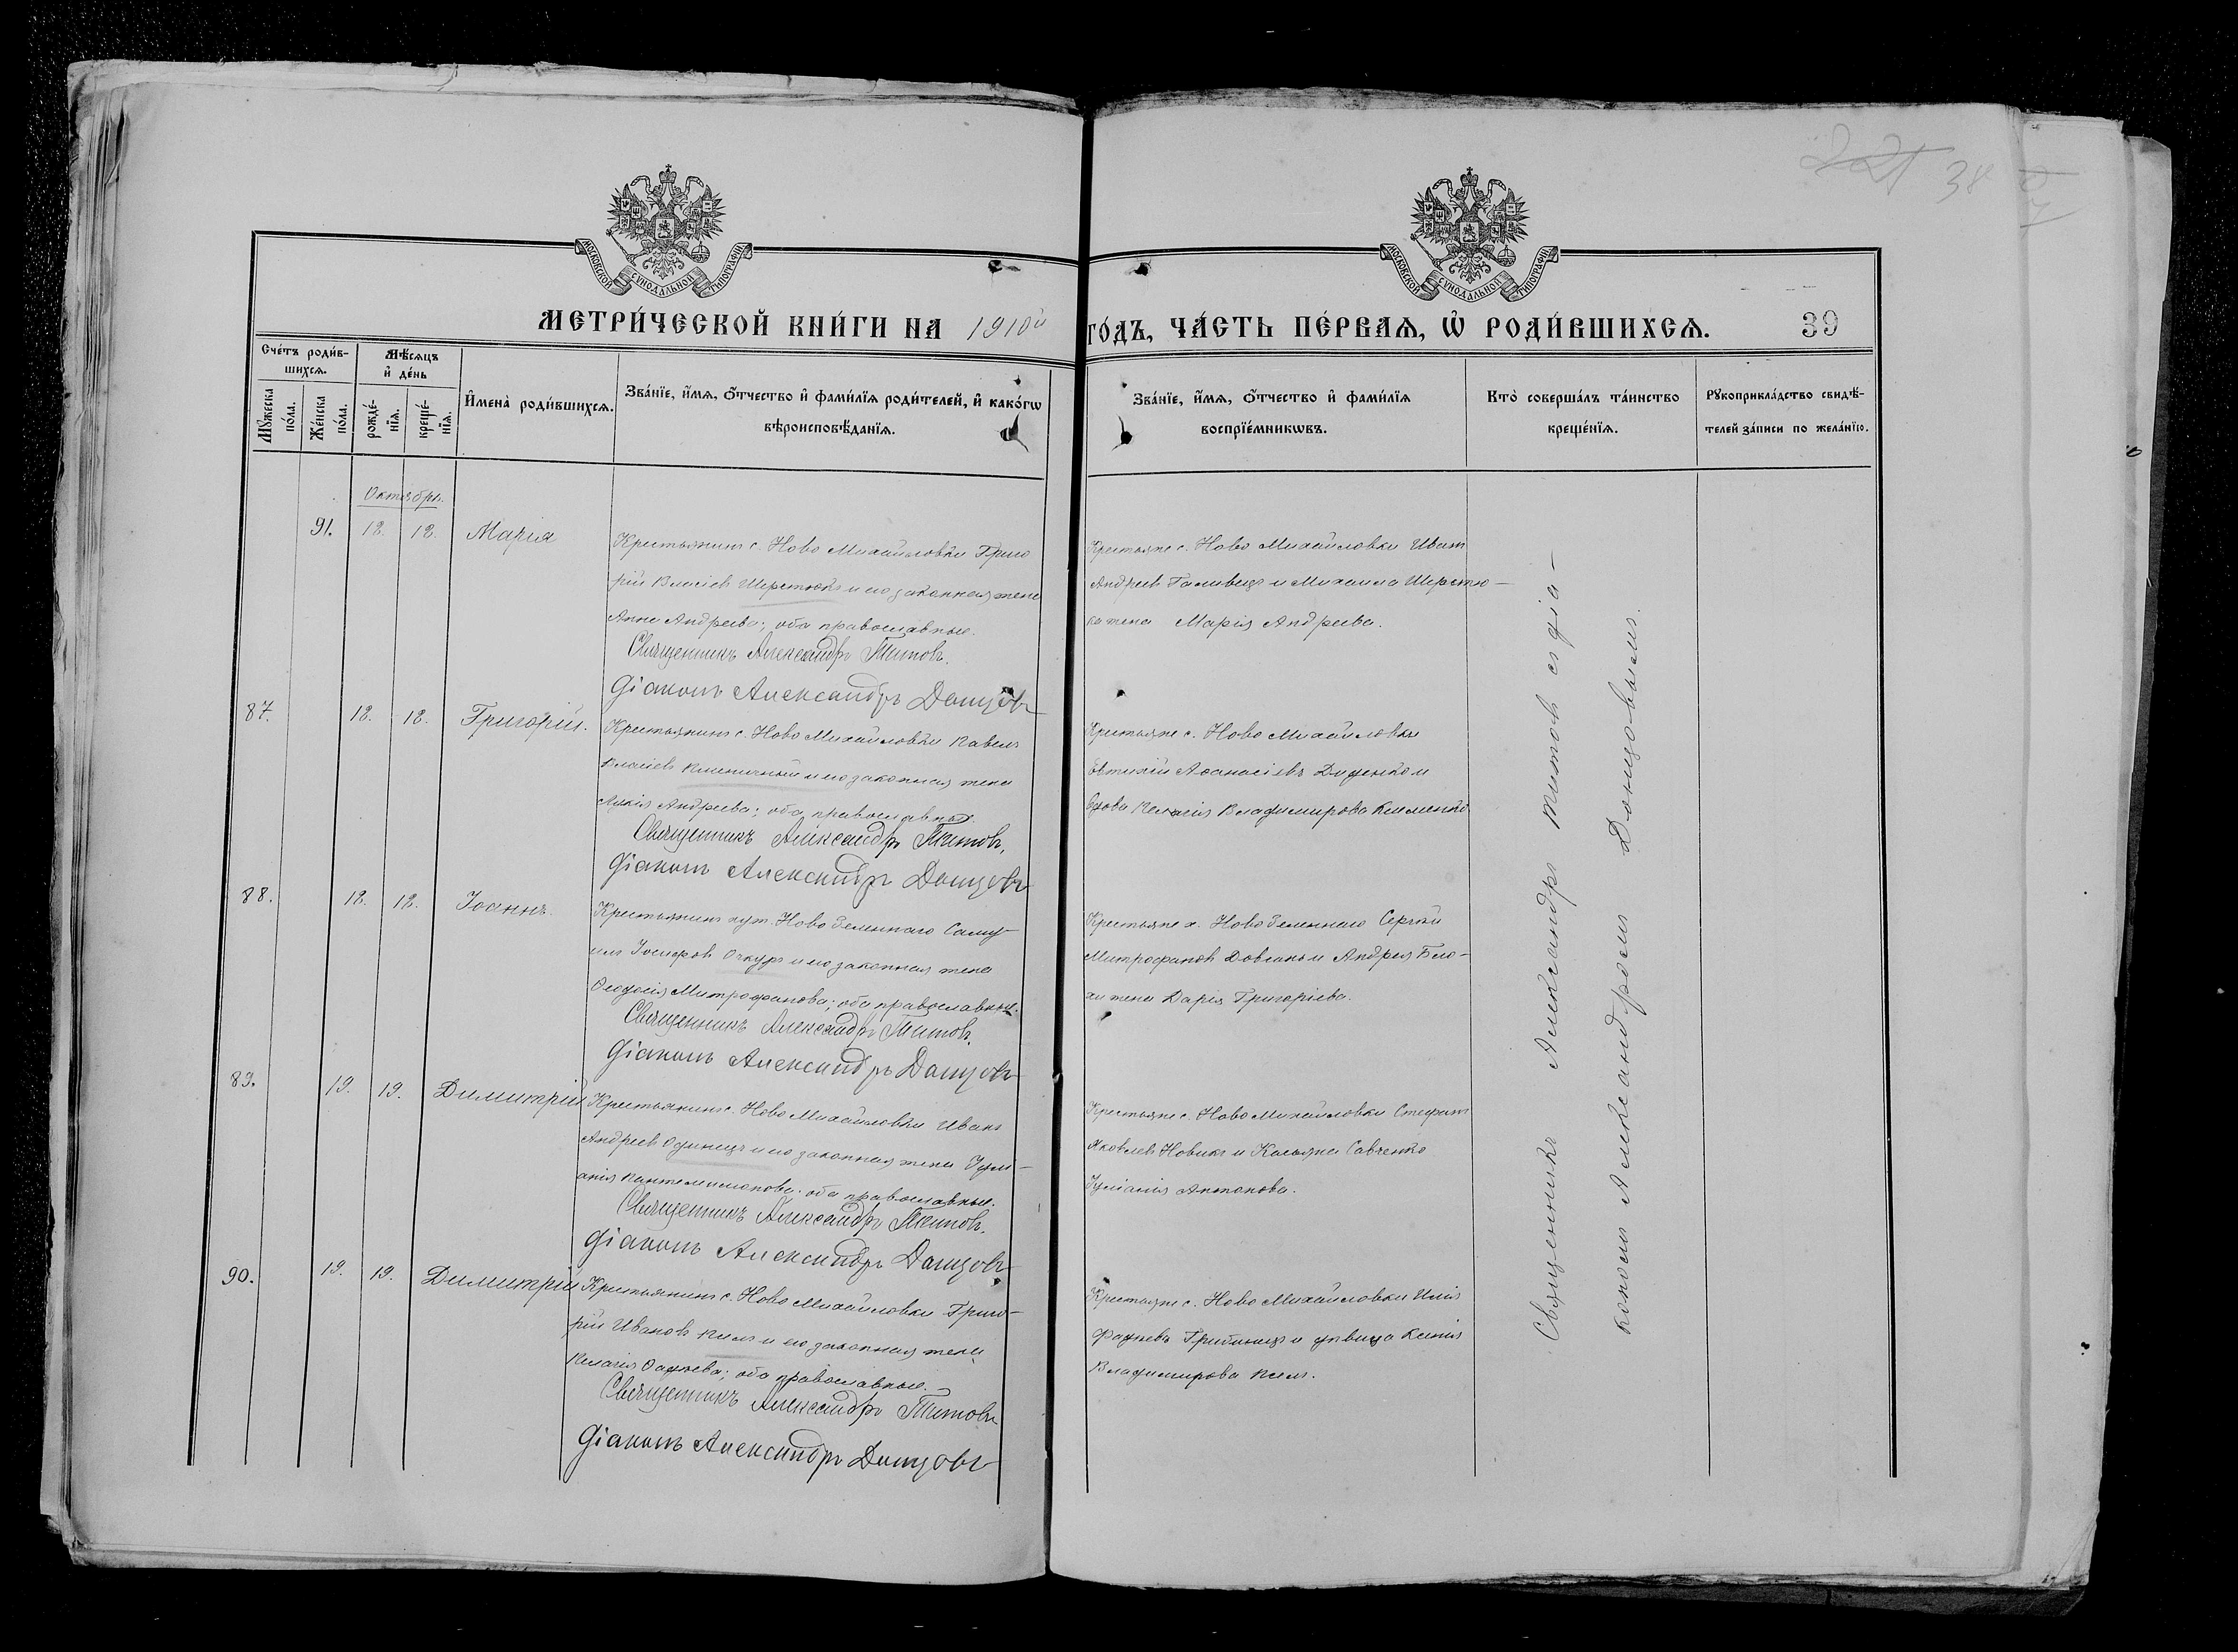 221 38
МОСКОВСКОЙ СѴНОДАЛЬНОЙ ТИПОГРАФІИ
МОСКОВСКОЙ СѴНОДАЛЬНОЙ ТИПОГРАФІИ
МЕТРИ́ЧЕСКОЙ КНИ́ГИ НА 1910й ГО́ДЪ, ЧА́СТЬ ПЕ́РВАѦ, Ѡ РОДИ́ВШИХСѦ. 39
Сче́тъ роди́в-
шихсѧ.
Мꙋжеска по́ла.
Же́нска по́ла.
Мѣ́сѧцъ и де́нь
рожде́-нїѧ.
креще́-нїѧ.
И҆мена̀ роди́вшихсѧ.
Зва́нїе, и҆́мѧ, ѻ҆́тчество и҆ фами́лїѧ роди́телей, и҆ како́гѡ
вѣроисповѣ́данїѧ.
Зва́нїе, и҆́мѧ, ѻ҆́тчество и҆ фами́лїѧ
воспрїе́мникѡвъ.
Кто̀ соверша́лъ та́инство
креще́нїѧ.
Рꙋкоприкла́дство свидѣ́-
телей за́писи по жела́нїю.
Октябрь.
91. 18. 18. Марія
Крестьянинъ с. Ново Михайловки Григо
рій Власіев Шерстюкъ и его законная жена
Анна Андреева; оба православные.
Священникъ Александръ Титовъ.
Діаконъ Александръ Донцовъ
Крестьяне с. Ново Михайловки Иван
Андреев Галивец и Михаила Шерстю-
ка жена Марія Андреева.
87. 18. 18. Григорій.
Крестьянинъ с. Ново Михайловки Павелъ
Власіев Пшеничный и его законная жена
Андреева; оба православные.
Священникъ Александръ Титовъ.
Діаконъ Александръ Донцовъ
Крестьяне с. Ново Михайловки
Евтихій Аѳанасіевъ Диденко и
вдова Пелагія Владимирова Клименко
88. 18. 18. Іоаннъ.
Крестьянинъ хут. Ново Зеленнаго Саму-
ил Іосифов Очкур и его законная жена
Ѳеодосія Митрофанова; оба православные.
Священникъ Александръ Титовъ.
Діаконъ Александръ Донцовъ
Крестьяне х. Ново Зеленнаго Сергій
Митрофанов Довгань и Андрея Бло-
хи жена Дарія Григоріева.
89. 19. 19. Димитрій
Крестьянинъ с. Ново Михайловки Иванъ
Андреев Одинецъ и его законная жена Іулі-
анія Пантелеимонова; оба православные.
Священникъ Александръ Титовъ.
Діаконъ Александръ Донцовъ
Крестьяне с. Ново Михайловки Стефанъ
Яковлев Новикъ и Касьяна Савченко
Іуліанія Антонова.
90. 19. 19. Димитрій
Крестьянинъ с. Ново Михайловки Григо-
рій Иванов и его законная жена
Пелагія Фадеева; оба православные.
Священникъ Александръ Титовъ
Діаконъ Александръ Донцовъ
Крестьяне с. Ново Михайловки Илія
Фадеевъ и дѣвица Ксенія
Владимирова
Священникъ Александръ Титовъ съ діа-
кономъ Александромъ Донцовымъ.